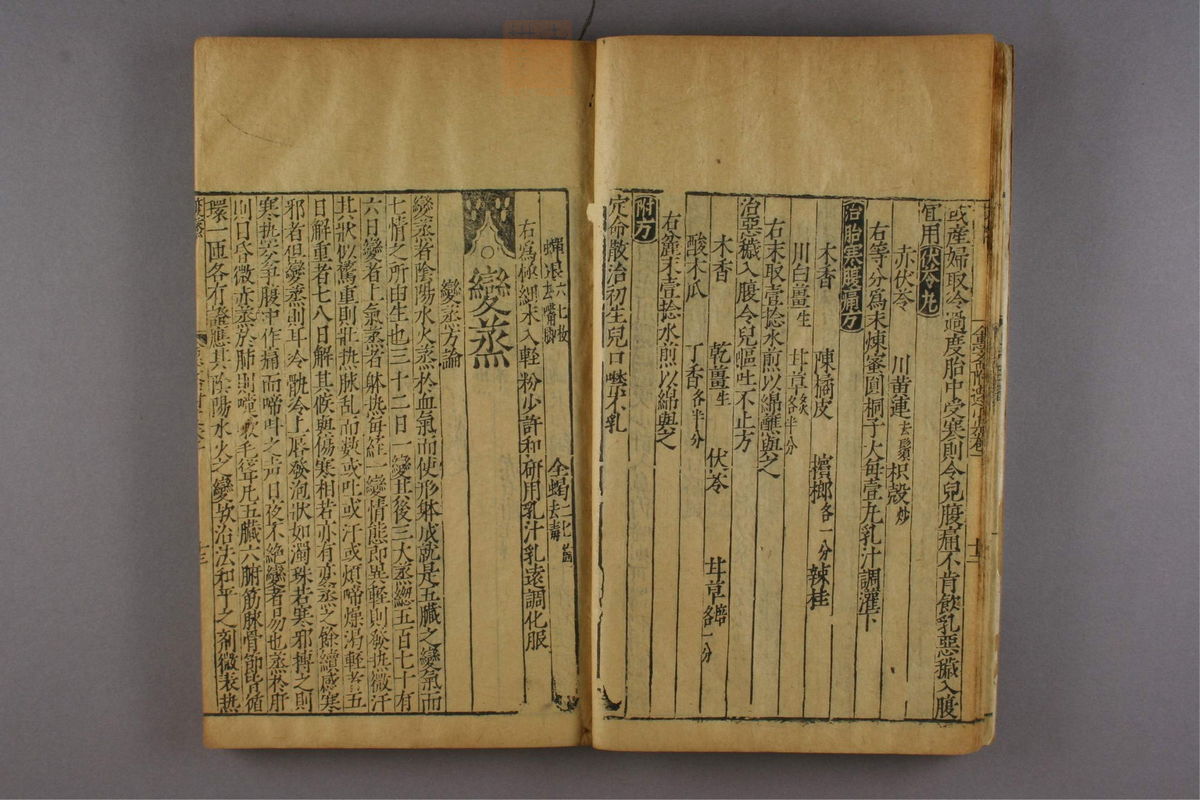 或產婦取冷過度胎中受寒則令兒腹痛不肯飲乳惡穢入腹
宜用伏苓丸
赤伏苓 川黄連去鬚 枳殻炒
右等分為末煉蜜圓桐子大每壹丸乳汁調灌下
治胎寒腹痛方
木香 陳橘皮 檳榔各一分 辣桂
川白薑生 甘草炙各半分
右末取壹捻水煎以綿蘸與之
治惡穢入腹令兒嘔吐不止方
木香 乾薑生 伏苓 甘草焙各一分
酸木瓜 丁香各半分
右麄末壹捻水煎以綿與之
附方
定命散治初生兒口噤不乳
蟬退六七枚去嘴脚 全蝎二七箇去毒
右為極細末入輕粉少許和研用乳汁乳遠調化服
變蒸
變蒸方論
變蒸者陰陽水火蒸於血氣而使形躰成就是五臟之變氣而
七情之所由生也三十二日一變其後三大蒸緫五百七十有
六日變者上氣蒸者躰热每經一變情態即異輕則發热微汗
其狀似驚重則壯热脉乱而數或吐或汗或煩啼燥渴輕者五
日解重者七八日解其候與傷寒相若亦有變蒸之餘續感寒
邪者但變蒸則耳冷骩冷上唇發泡狀如濁珠若寒邪搏之則
寒热交争腹中作痛而啼叫之声日夜不絶變者易也蒸於肝
則目昏微赤蒸於肺則嚏欬毛聳凢五臟六腑筋脉骨節皆循
環一匝各有證應其陰陽水火之變欤治法和平之剤微表热